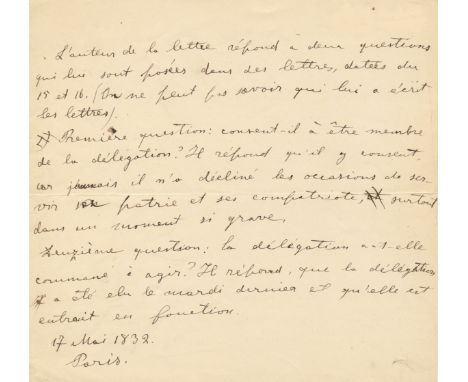 L'auteur de la lettre répond à deux questions
qui lui sont posées dans des lettres, datées du
15 et 16. (On ne peut pas savoir qui lui a écrit
les lettres).
Première question: consent-il à être membre
de la délégation? Il répond qu'il y consent,
car jamais il n'a décliné les occasions de ser-
vir sa patrie et ses compatriote, surtout
dans un moment si grave.
Deuzième question: la délégation a-t-elle
commencé à agir? Il répond, que la délégation
a été elu le mardi dernier et qu'elle est
entrait en fonction.
17 Mai 1832.
Paris.